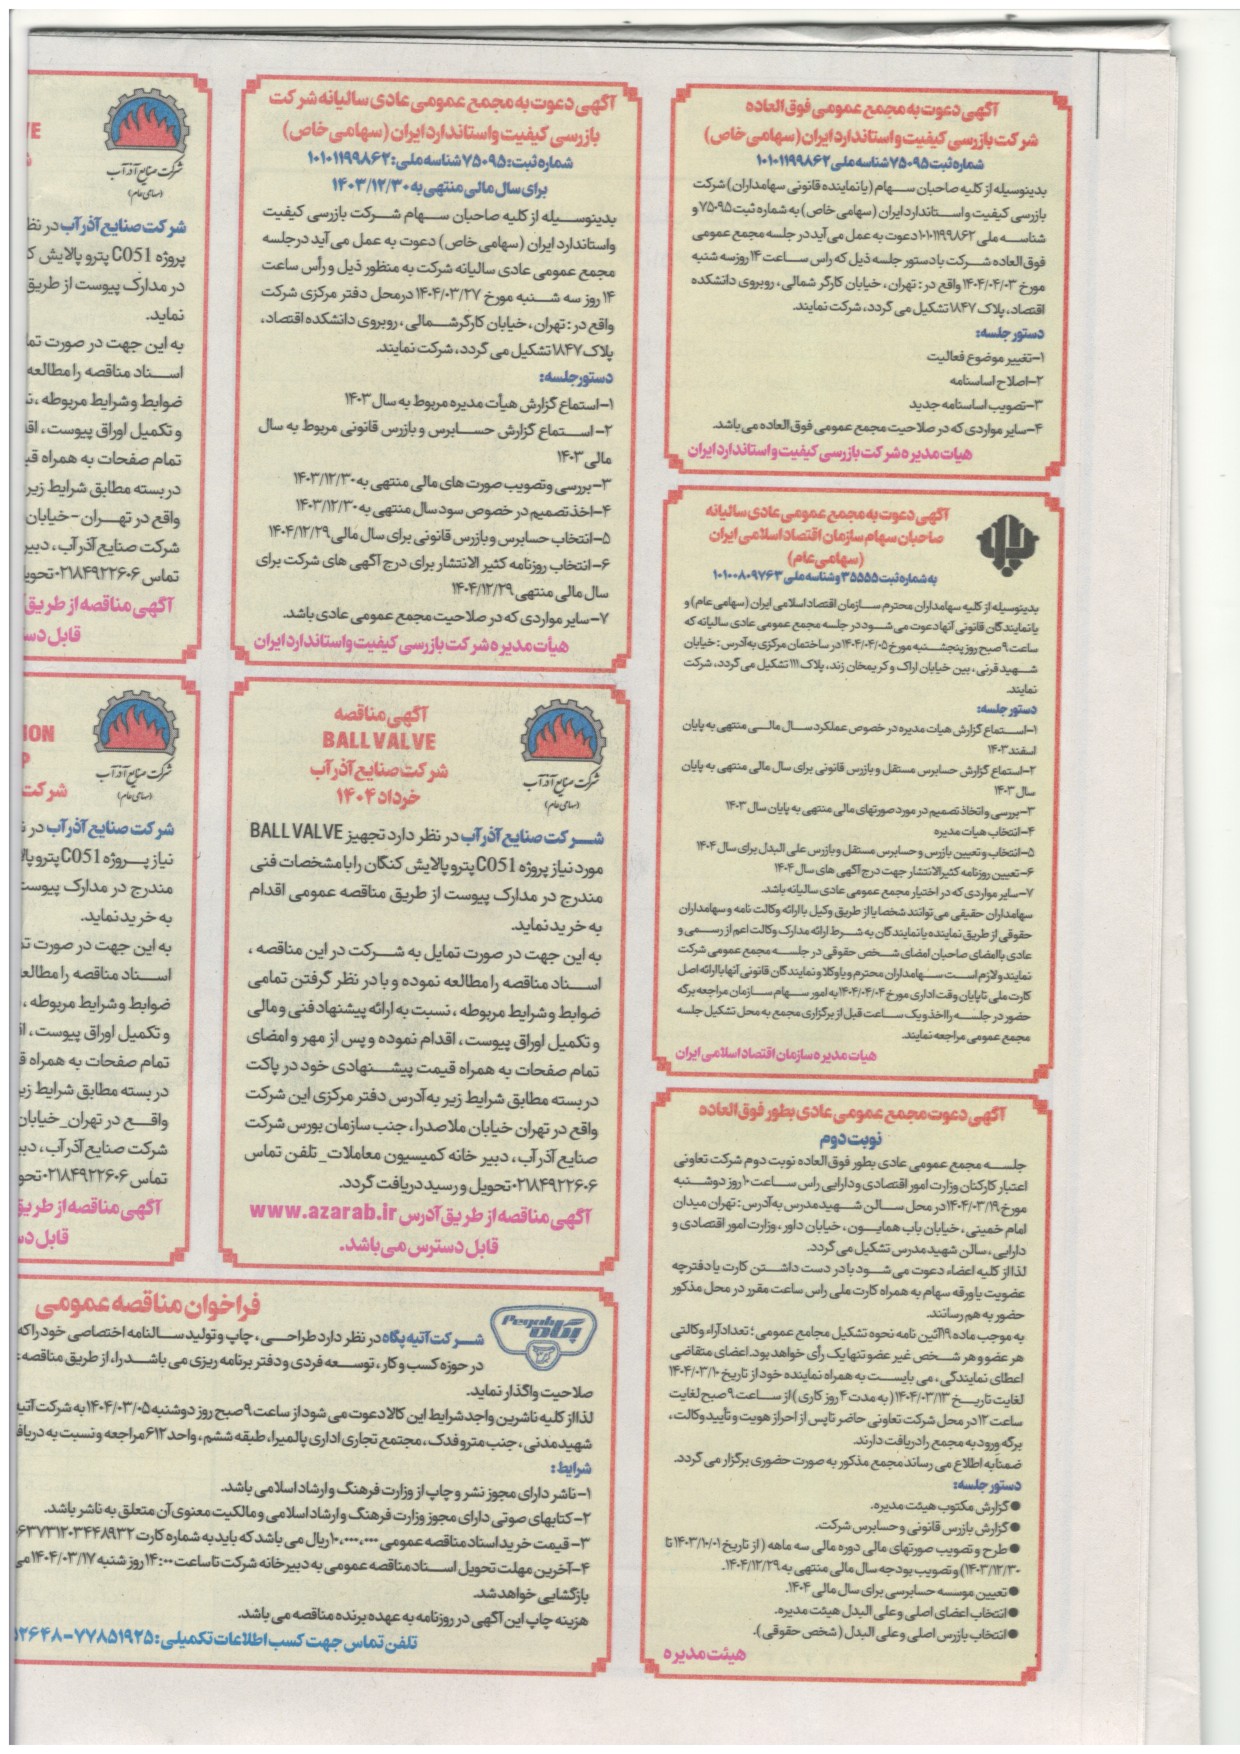 آگهی دعوت به مجمع عمومی فوق العاده
شرکت بازرسی کیفیت و استاندارد ایران (سهامی خاص)
شماره ثبت ۷۵۰۹۵ شناسه ملی ۱۰۱۰۱۱۹۹۸۶۲
بدینوسیله از کلیه صاحبان سهام (یا نماینده قانونی سهامداران) شرکت
بازرسی کیفیت و استاندارد ایران (سهامی خاص) به شماره ثبت ۷۵۰۹۵ و
شناسه ملی ۱۰۱۰۱۱۹۹۸۶۲ دعوت به عمل می آید در جلسه مجمع عمومی
فوق العاده شرکت با دستور جلسه ذیل که راس ساعت ۱۴ روز سه شنبه
مورخ ۱۴۰۴/۰۴/۰۳ واقع در : تهران ، خیابان کارگر شمالی ، روبروی دانشکده
اقتصاد، پلاک ۱۸۴۷ تشکیل می گردد، شرکت نمایند.
دستور جلسه:
۱-تغییر موضوع فعالیت
۲-اصلاح اساسنامه
۳-تصویب اساسنامه جدید
۴-سایر مواردی که در صلاحیت مجمع عمومی فوق العاده می باشد.
هیات مدیره شرکت بازرسی کیفیت و استاندارد ایران
آگهی دعوت به مجمع عمومی عادی سالیانه
صاحبان سهام سازمان اقتصاد اسلامی ایران
(سهامی عام)
به شماره ثبت ۳۵۵۵۵ و شناسه ملی ۱۰۱۰۰۸۰۹۷۶۳
بدینوسیله از کلیه سهامداران محترم سازمان اقتصاد اسلامی ایران (سهامی عام) و
یا نمایندگان قانونی آنها دعوت می شود در جلسه مجمع عمومی عادی سالیانه که
ساعت ۹ صبح روز پنجشنبه مورخ ۱۴۰۴/۰۴/۰۵ در ساختمان مرکزی به آدرس : خیابان
شهید قرنی ، بین خیابان اراک و کریمخان زند، پلاک ۱۱۱ تشکیل می گردد، شرکت
نمایند.
دستور جلسه:
۱-استماع گزارش هیات مدیره در خصوص عملکرد سال مالی منتهی به پایان
اسفند ۱۴۰۳
۲-استماع گزارش حسابرس مستقل و بازرس قانونی برای سال مالی منتهی به پایان
سال ۱۴۰۳
۳-بررسی و اتخاذ تصمیم در مورد صورتهای مالی منتهی به پایان سال ۱۴۰۳
۴-انتخاب هیات مدیره
۵-انتخاب و تعیین بازرس و حسابرس مستقل و بازرس علی البدل برای سال ۱۴۰۴
۶-تعیین روزنامه کثیرالانتشار جهت درج آگهی های سال ۱۴۰۴
۷-سایر مواردی که در اختیار مجمع عمومی عادی سالیانه باشد.
سهامداران حقیقی می توانند شخصا یا از طریق وکیل با ارائه وکالت نامه و سهامداران
حقوقی از طریق نماینده یا نمایندگان به شرط ارائه مدارک وکالت اعم از رسمی و
عادی با امضای صاحبان امضای شخص حقوقی در جلسه مجمع عمومی شرکت
نمایند و لازم است سهامداران محترم و یا وکلا و نمایندگان قانونی آنها با ارائه اصل
کارت ملی تا پایان وقت اداری مورخ ۱۴۰۴/۰۴/۰۴ به امور سهام سازمان مراجعه برگه
حضور در جلسه را اخذ و یک ساعت قبل از برگزاری مجمع به محل تشکیل جلسه
مجمع عمومی مراجعه نمایند.
هیات مدیره سازمان اقتصاد اسلامی ایران
آگهی دعوت مجمع عمومی عادی بطور فوق العاده
نوبت دوم
جلسه مجمع عمومی عادی بطور فوق العاده نوبت دوم شرکت تعاونی
اعتبار کارکنان وزارت امور اقتصادی و دارایی راس ساعت ۱۰ روز دوشنبه
مورخ ۱۴۰۴/۰۳/۱۹ در محل سالن شهید مدرس به آدرس : تهران میدان
امام خمینی ، خیابان باب همایون ، خیابان داور ، وزارت امور اقتصادی و
دارایی ، سالن شهید مدرس تشکیل می گردد.
لذا از کلیه اعضاء دعوت می شود با در دست داشتن کارت یا دفترچه
عضویت یا ورقه سهام به همراه کارت ملی راس ساعت مقرر در محل مذکور
حضور به هم رسانند.
به موجب ماده ۱۹ آئین نامه نحوه تشکیل مجامع عمومی ؛ تعداد آراء وکالتی
هر عضو و هر شخص غیر عضو تنها یک رأی خواهد بود. اعضای متقاضی
اعطای نمایندگی ، می بایست به همراه نماینده خود از تاریخ ۱۴۰۴/۰۳/۱۰
لغایت تاریخ ۱۴۰۴/۰۳/۱۳ ( به مدت ۴ روز کاری ) از ساعت ۹ صبح لغایت
ساعت ۱۲ در محل شرکت تعاونی حاضر تا پس از احراز هویت و تأیید وکالت ،
برگه ورود به مجمع را دریافت دارند.
ضمنا به اطلاع می رساند مجمع مذکور به صورت حضوری برگزار می گردد.
دستور جلسه:
●گزارش مکتوب هیئت مدیره.
●گزارش بازرس قانونی و حسابرس شرکت.
●طرح و تصویب صورتهای مالی دوره مالی سه ماهه ( از تاریخ ۱۴۰۳/۱۰/۰۱ تا
۱۴۰۳/۱۲/۳۰) و تصویب بودجه سال مالی منتهی به ۱۴۰۴/۱۲/۲۹.
●تعیین موسسه حسابرسی برای سال مالی ۱۴۰۴.
●انتخاب اعضای اصلی و علی البدل هیئت مدیره.
●انتخاب بازرس اصلی و علی البدل (شخص حقوقی ).
هیئت مدیره
آگهی دعوت به مجمع عمومی عادی سالیانه شرکت
بازرسی کیفیت و استاندارد ایران (سهامی خاص)
شماره ثبت: ۷۵۰۹۵ شناسه ملی: ۱۰۱۰۱۱۹۹۸۶۲
برای سال مالی منتهی به ۱۴۰۳/۱۲/۳۰
بدینوسیله از کلیه صاحبان سهام شرکت بازرسی کیفیت
و استاندارد ایران (سهامی خاص) دعوت به عمل می آید در جلسه
مجمع عمومی عادی سالیانه شرکت به منظور ذیل و رأس ساعت
۱۴ روز سه شنبه مورخ ۱۴۰۴/۰۳/۲۷ در محل دفتر مرکزی شرکت
واقع در : تهران ، خیابان کارگر شمالی ، روبروی دانشکده اقتصاد،
پلاک ۱۸۴۷ تشکیل می گردد، شرکت نمایند.
دستور جلسه:
۱-استماع گزارش هیأت مدیره مربوط به سال ۱۴۰۳
۲- استماع گزارش حسابرس و بازرس قانونی مربوط به سال
مالی ۱۴۰۳
۳-بررسی و تصویب صورت های مالی منتهی به ۱۴۰۳/۱۲/۳۰
۴-اخذ تصمیم در خصوص سود سال منتهی به ۱۴۰۳/۱۲/۳۰
۵-انتخاب حسابرس و بازرس قانونی برای سال مالی ۱۴۰۴/۱۲/۲۹
۶-انتخاب روزنامه کثیر الانتشار برای درج آگهی های شرکت برای
سال مالی منتهی ۱۴۰۴/۱۲/۲۹
۷-سایر مواردی که در صلاحیت مجمع عمومی عادی باشد.
هیأت مدیره شرکت بازرسی کیفیت و استاندارد ایران
شرکت صنایع آذرآب
(سهامی عام)
آگهی مناقصه
BALL VALVE
شرکت صنایع آذرآب
خرداد ۱۴۰۴
شرکت صنایع آذرآب در نظر دارد تجهیز BALL VALVE
مورد نیاز پروژه C051 پترو پالایش کنگان را با مشخصات فنی
مندرج در مدارک پیوست از طریق مناقصه عمومی اقدام
به خرید نماید.
به این جهت در صورت تمایل به شرکت در این مناقصه ،
اسناد مناقصه را مطالعه نموده و با در نظر گرفتن تمامی
ضوابط و شرایط مربوطه ، نسبت به ارائه پیشنهاد فنی و مالی
و تکمیل اوراق پیوست ، اقدام نموده و پس از مهر و امضای
تمام صفحات به همراه قیمت پیشنهادی خود در پاکت
در بسته مطابق شرایط زیر به آدرس دفتر مرکزی این شرکت
واقع در تهران خیابان ملاصدرا، جنب سازمان بورس شرکت
صنایع آذرآب ، دبیر خانه کمیسیون معاملات_ تلفن تماس
۰۲۱۸۴۹۲۲۶۰۶ تحویل و رسید دریافت گردد.
آگهی مناقصه از طریق آدرس www.azarab.ir
قابل دسترس می باشد.
شرکت صنایع آذرآب
(سهامی عام)
VE
شرکت صنایع آذرآب در نظ
پروژه C051 پترو پالایش ک
در مدارک پیوست از طریق
نماید.
به این جهت در صورت تما
اسناد مناقصه را مطالعه
ضوابط و شرایط مربوطه ، ن
و تکمیل اوراق پیوست ، اقد
تمام صفحات به همراه قی
در بسته مطابق شرایط زیر
واقع در تهران -خیابان
شرکت صنایع آذرآب ، دبیر
تماس ۰۲۱۸۴۹۲۲۶۰۶ تحویل
آگهی مناقصه از طریق
قابل دس
شرکت صنایع آذرآب
(سهامی عام)
ION
P
شرکت
شرکت صنایع آذرآب در ن
نیاز پروژه C051 پترو پالا
مندرج در مدارک پیوست
به خرید نماید.
به این جهت در صورت تم
اسناد مناقصه را مطالعه
ضوابط و شرایط مربوطه ،
و تکمیل اوراق پیوست ، اق
تمام صفحات به همراه ق
در بسته مطابق شرایط زیر
واقع در تهران_خیابان
شرکت صنایع آذرآب ، دبی
تماس ۰۲۱۸۴۹۲۲۶۰۶ تحو
آگهی مناقصه از طریق
قابل د
Pegah
پگاه
فراخوان مناقصه عمومی
شرکت آتیه پگاه در نظر دارد طراحی ، چاپ و تولید سالنامه اختصاصی خود را که
در حوزه کسب و کار ، توسعه فردی و دفتر برنامه ریزی می باشد را، از طریق مناقصه
صلاحیت واگذار نماید.
لذا از کلیه ناشرین واجد شرایط این کالا دعوت می شود از ساعت ۹ صبح روز دوشنبه ۱۴۰۴/۰۳/۰۵ به شرکت آتیه
شهید مدنی ، جنب مترو فدک ، مجتمع تجاری اداری پالمیرا، طبقه ششم ، واحد ۶۱۲ مراجعه و نسبت به دریاف
شرایط:
۱-ناشر دارای مجوز نشر و چاپ از وزارت فرهنگ و ارشاد اسلامی باشد.
۲-کتابهای صوتی دارای مجوز وزارت فرهنگ و ارشاد اسلامی و مالکیت معنوی آن متعلق به ناشر باشد.
۳- قیمت خرید اسناد مناقصه عمومی ۱۰,۰۰۰,۰۰۰ ریال می باشد که باید به شماره کارت ۶۳۷۳۱۲۰۳۴۴۸۹۳۲
۴-آخرین مهلت تحویل اسناد مناقصه عمومی به دبیرخانه شرکت تا ساعت ۱۴:۰۰ روز شنبه ۱۴۰۴/۰۳/۱۷ می
بازگشایی خواهد شد.
هزینه چاپ این آگهی در روزنامه به عهده برنده مناقصه می باشد.
تلفن تماس جهت کسب اطلاعات تکمیلی : ۷۷۸۵۱۹۲۵-